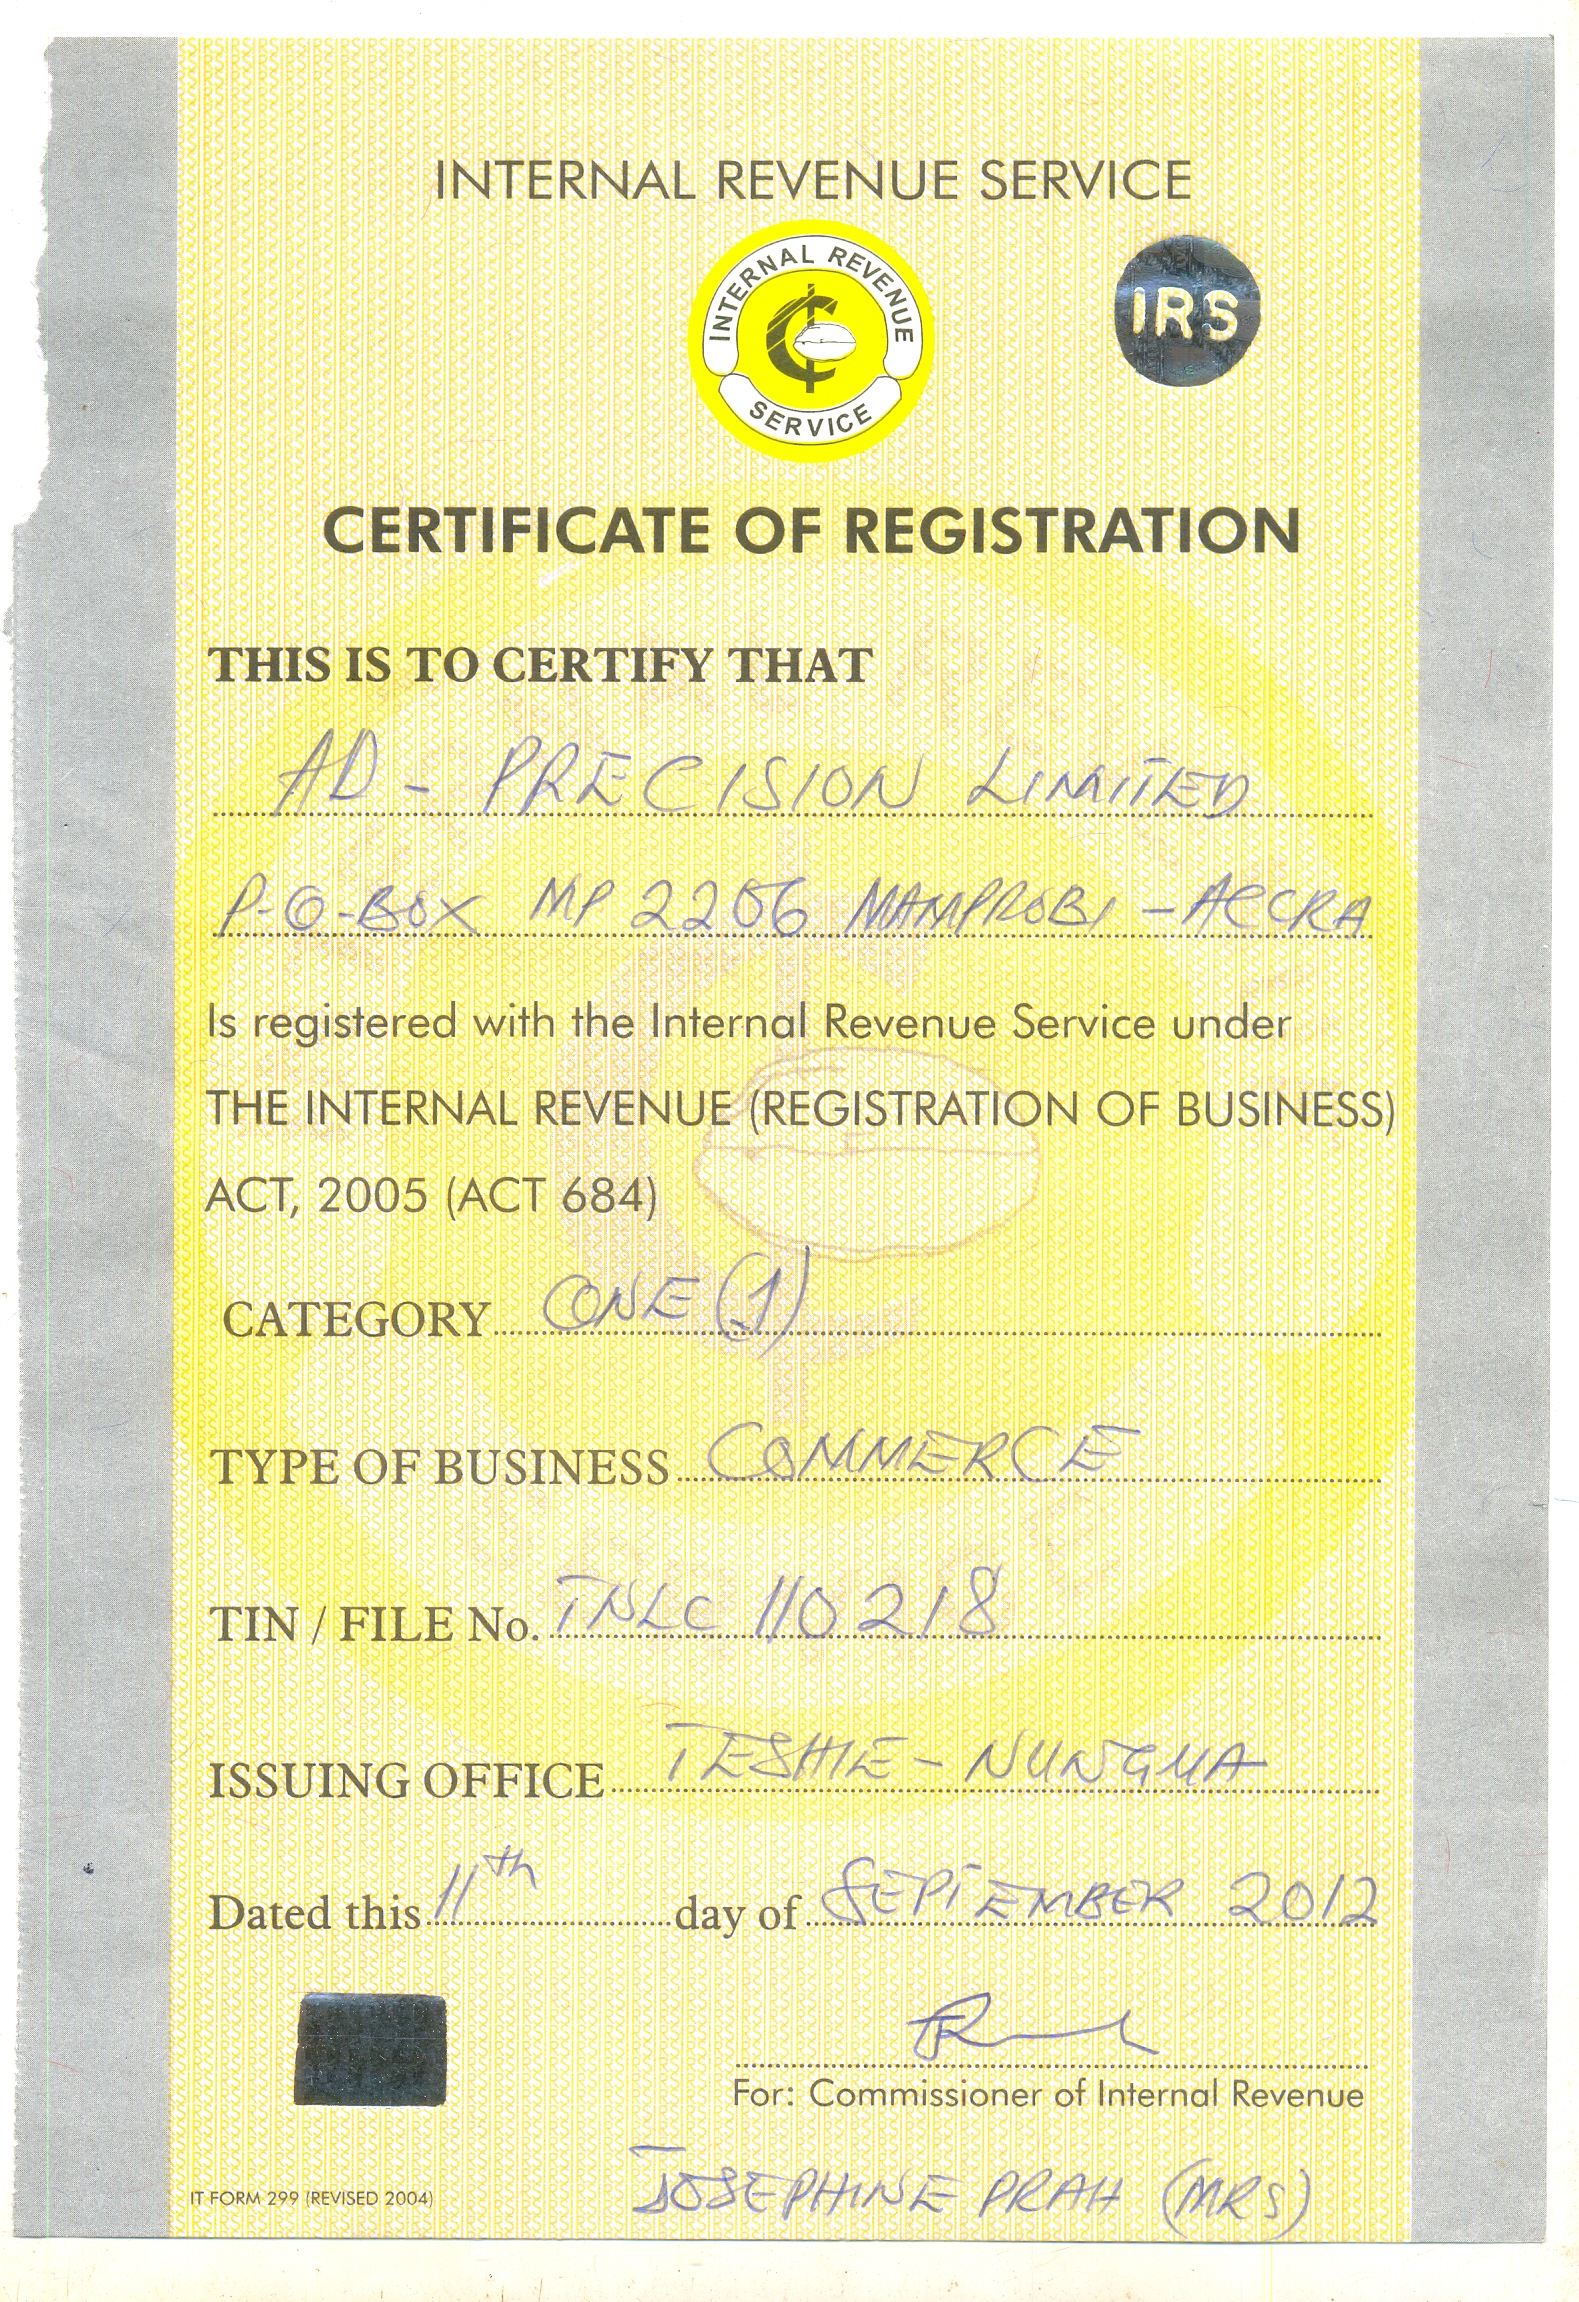 INTERNAL REVENUE SERVICE
INTERNAL REVENUE
SERVICE
IRS
CERTIFICATE OF REGISTRATION
THIS IS TO CERTIFY THAT
AD - PRECISION LIMITED
P-O-BOX MP 2206 MAMPROBI - ACCRA
Is registered with the Internal Revenue Service under
THE INTERNAL REVENUE (REGISTRATION OF BUSINESS)
ACT, 2005 (ACT 684)
CATEGORY ONE (1)
TYPE OF BUSINESS COMMERCE
TIN / FILE No. TNLC 110218
ISSUING OFFICE TESHIE - NUNGUA
Dated this 11th day of SEPTEMBER 2012
For: Commissioner of Internal Revenue
JOSEPHINE PRAH (MRS)
IT FORM 299 (REVISED 2004)